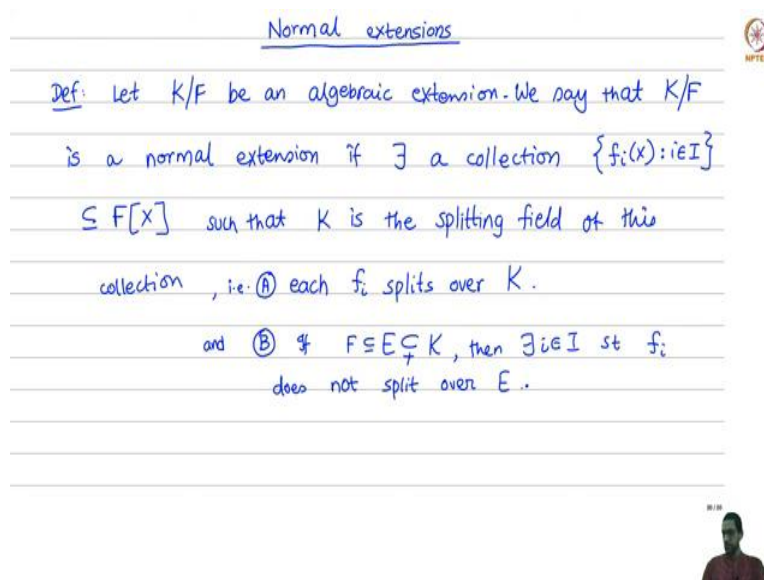 Normal extensions
NPTE
Def: Let K/F be an algebraic extension. We say that K/F
is a normal extension if ∃ a collection {fᵢ(x) : i∈I}
⊆ F[X] such that K is the splitting field of this
collection, i.e. Ⓐ each fᵢ splits over K.
and Ⓑ If F ⊆ E ⊊ K, then ∃ i∈I st fᵢ
does not split over E.